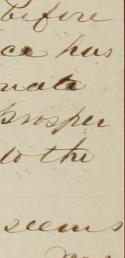 before
ce has
nate
prosper
to the
seems